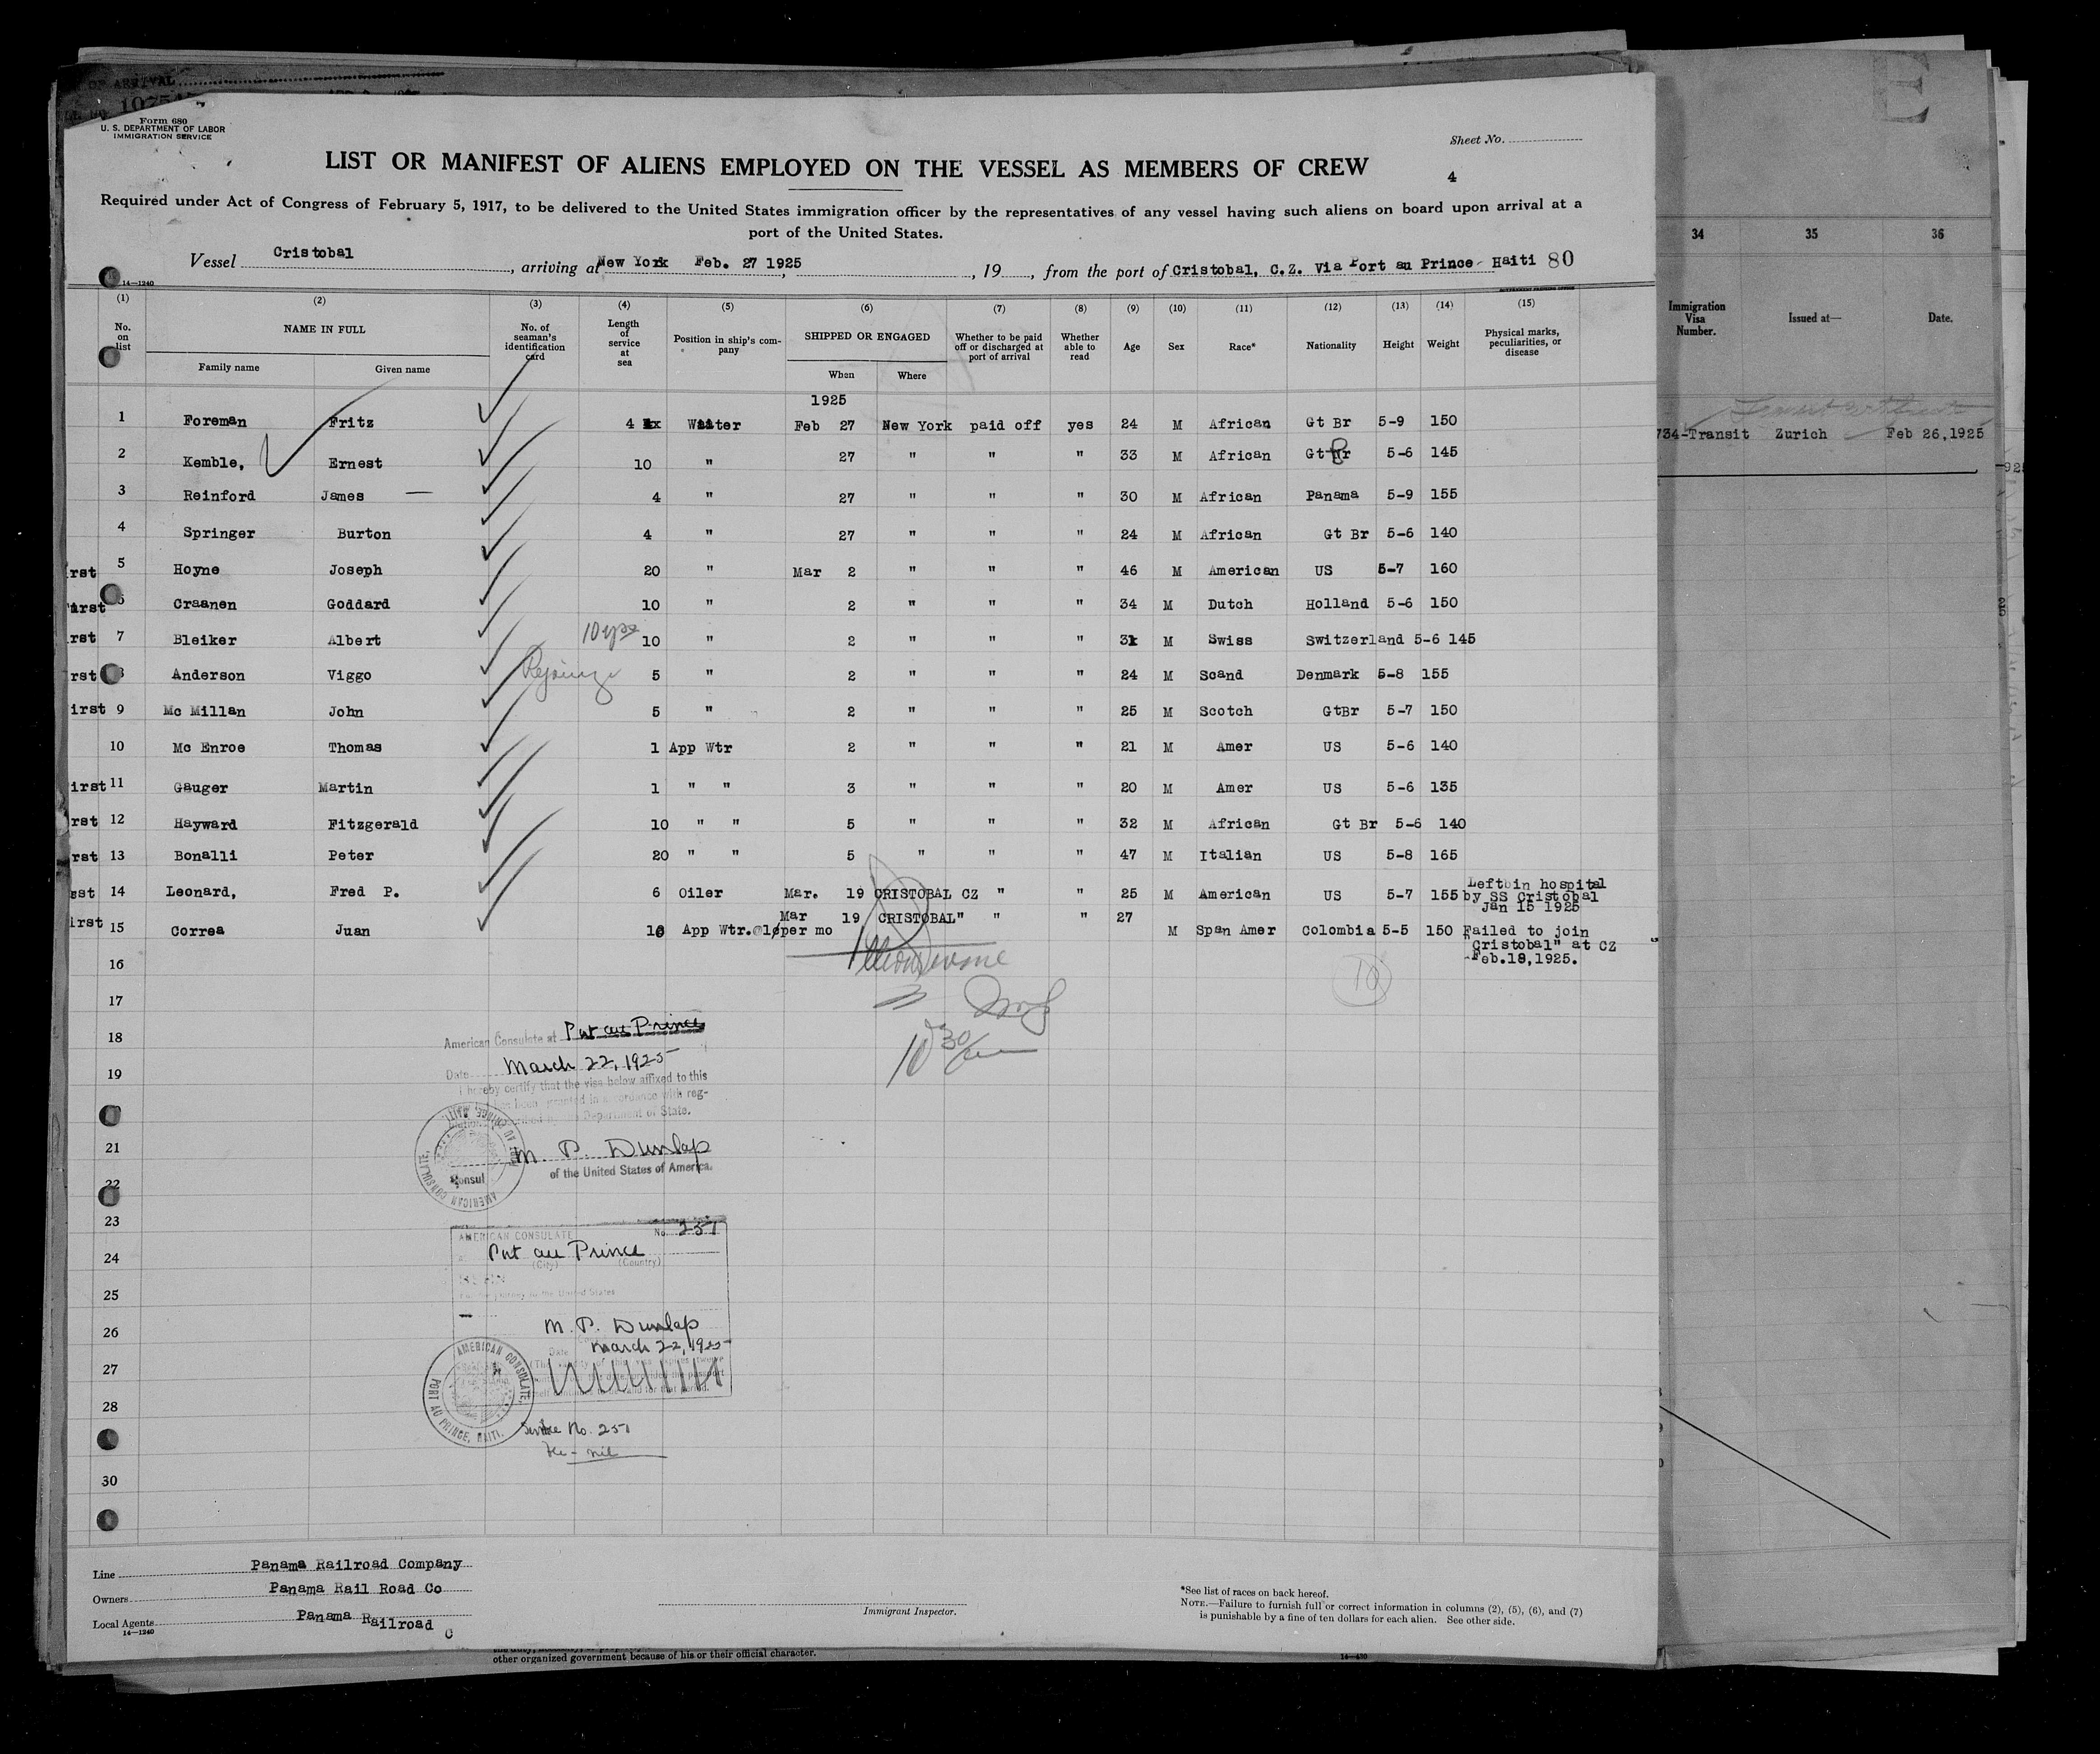 OF ARRIVAL
Form 680
U. S. DEPARTMENT OF LABOR
IMMIGRATION SERVICE
Sheet No.
4
LIST OR MANIFEST OF ALIENS EMPLOYED ON THE VESSEL AS MEMBERS OF CREW
Required under Act of Congress of February 5, 1917, to be delivered to the United States immigration officer by the representatives of any vessel having such aliens on board upon arrival at a
port of the United States.
Vessel Cristobal, arriving at New York Feb. 27 1925, 19, from the port of Cristobal, C.Z. Via Port au Prince- Haiti 80
14-1240
(1) (2) (3) (4) (5) (6) (7) (8) (9) (10) (11) (12) (13) (14) (15)
No. on list
NAME IN FULL
Family name Given name
No. of seaman's identification card
Length of service at sea
Position in ship's company
SHIPPED OR ENGAGED
When Where
Whether to be paid off or discharged at port of arrival
Whether able to read
Age Sex Race* Nationality Height Weight
Physical marks, peculiarities, or disease
1925
1 Foreman Fritz 4 Waiter Feb 27 New York paid off yes 24 M African Gt Br 5-9 150
2 Kemble, Ernest 10 " 27 " " " 33 M African Gt Br 5-6 145
3 Reinford James — 4 " 27 " " " 30 M African Panama 5-9 155
4 Springer Burton 4 " 27 " " " 24 M African Gt Br 5-6 140
rst 5 Hoyne Joseph 20 " Mar 2 " " " 46 M American US 5-7 160
irst Craanen Goddard 10 " 2 " " " 34 M Dutch Holland 5-6 150
rst 7 Bleiker Albert 10 yrs 10 " 2 " " " 31 M Swiss Switzerland 5-6 145
rst Anderson Viggo 5 " 2 " " " 24 M Scand Denmark 5-8 155
irst 9 Mc Millan John 5 " 2 " " " 25 M Scotch GtBr 5-7 150
10 Mc Enroe Thomas 1 App Wtr 2 " " " 21 M Amer US 5-6 140
irst 11 Gauger Martin 1 " " 3 " " " 20 M Amer US 5-6 135
rst 12 Hayward Fitzgerald 10 " " 5 " " " 32 M African Gt Br 5-6 140
rst 13 Bonalli Peter 20 " " 5 " " " 47 M Italian US 5-8 165
14 Leonard, Fred P. 6 Oiler Mar. 19 CRISTOBAL CZ " " 25 M American US 5-7 155 Left in hospital
by SS Cristobal
Jan 15 1925
irst 15 Correa Juan 10 App Wtr. @ 10 per mo Mar 19 CRISTOBAL" " " 27 M Span Amer Colombia 5-5 150 Failed to join
"Cristobal" at CZ
Feb.18,1925.
16
17
18
19
21
22
23
24
25
26
27
28
30
10
10 30
American Consulate at Port au Prince
Date March 22, 1925
I hereby certify that the visa below affixed to this
has been granted in accordance with reg-
Department of State.
M. P. Dunlap
Consul of the United States of America.
AMERICAN CONSULATE, PORT AU PRINCE, HAITI.
AMERICAN CONSULATE No. 251
Port au Prince
(City) (Country)
M. P. Dunlap
Date March 22, 1925
AMERICAN CONSULATE, PORT AU PRINCE, HAITI.
Service No. 251
Fee - nil
Line Panama Railroad Company
Owners Panama Rail Road Co
Local Agents Panama Railroad C
14-1240
Immigrant Inspector.
*See list of races on back hereof.
NOTE.—Failure to furnish full or correct information in columns (2), (5), (6), and (7)
is punishable by a fine of ten dollars for each alien. See other side.
other organized government because of his or their official character.
14-430
E
34 35 36
Immigration Visa Number.
Issued at—
Date.
734-Transit Zurich Feb 26,1925